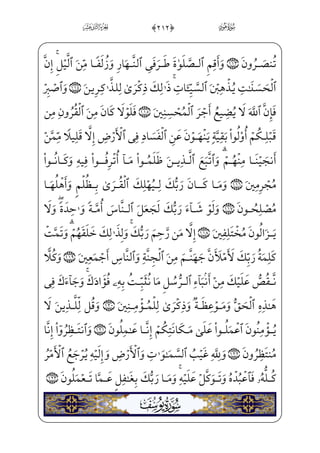 سُورَةُ هُودٍ ﴿٢١٢﴾ الجُزْءُ الثَّانِي عَشَرَ
تُنصَرُونَ ۝ وَأَقِمِ ٱلصَّلَوٰةَ طَرَفَيِ ٱلنَّهَارِ وَزُلَفًا مِّنَ ٱلَّيْلِ ۚ إِنَّ
ٱلْحَسَنَٰتِ يُذْهِبْنَ ٱلسَّيِّـَٔاتِ ۚ ذَٰلِكَ ذِكْرَىٰ لِلذَّٰكِرِينَ ۝ وَٱصْبِرْ
فَإِنَّ ٱللَّهَ لَا يُضِيعُ أَجْرَ ٱلْمُحْسِنِينَ ۝ فَلَوْلَا كَانَ مِنَ ٱلْقُرُونِ مِن
قَبْلِكُمْ أُو۟لُوا۟ بَقِيَّةٍ يَنْهَوْنَ عَنِ ٱلْفَسَادِ فِى ٱلْأَرْضِ إِلَّا قَلِيلًا مِّمَّنْ
أَنجَيْنَا مِنْهُمْ ۗ وَٱتَّبَعَ ٱلَّذِينَ ظَلَمُوا۟ مَآ أُتْرِفُوا۟ فِيهِ وَكَانُوا۟
مُجْرِمِينَ ۝ وَمَا كَانَ رَبُّكَ لِيُهْلِكَ ٱلْقُرَىٰ بِظُلْمٍ وَأَهْلُهَا
مُصْلِحُونَ ۝ وَلَوْ شَآءَ رَبُّكَ لَجَعَلَ ٱلنَّاسَ أُمَّةً وَٰحِدَةً ۖ وَلَا
يَزَالُونَ مُخْتَلِفِينَ ۝ إِلَّا مَن رَّحِمَ رَبُّكَ ۚ وَلِذَٰلِكَ خَلَقَهُمْ ۗ وَتَمَّتْ
كَلِمَةُ رَبِّكَ لَأَمْلَأَنَّ جَهَنَّمَ مِنَ ٱلْجِنَّةِ وَٱلنَّاسِ أَجْمَعِينَ ۝ وَكُلًّا
نَّقُصُّ عَلَيْكَ مِنْ أَنۢبَآءِ ٱلرُّسُلِ مَا نُثَبِّتُ بِهِۦ فُؤَادَكَ ۚ وَجَآءَكَ فِى
هَٰذِهِ ٱلْحَقُّ وَمَوْعِظَةٌ وَذِكْرَىٰ لِلْمُؤْمِنِينَ ۝ وَقُل لِّلَّذِينَ لَا
يُؤْمِنُونَ ٱعْمَلُوا۟ عَلَىٰ مَكَانَتِكُمْ إِنَّا عَٰمِلُونَ ۝ وَٱنتَظِرُوٓا۟ إِنَّا
مُنتَظِرُونَ ۝ وَلِلَّهِ غَيْبُ ٱلسَّمَٰوَٰتِ وَٱلْأَرْضِ وَإِلَيْهِ يُرْجَعُ ٱلْأَمْرُ
كُلُّهُۥ فَٱعْبُدْهُ وَتَوَكَّلْ عَلَيْهِ ۚ وَمَا رَبُّكَ بِغَٰفِلٍ عَمَّا تَعْمَلُونَ ۝
سُورَةُ يُوسُفَ